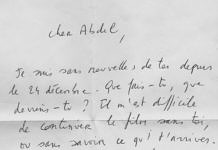 Cher Abdel,
Je suis sans nouvelles de toi depuis
le 24 décembre. Que fais-tu, que
deviens-tu ? Il m'est difficile
de continuer le film sans toi,
ou sans savoir ce qui t'arrives.